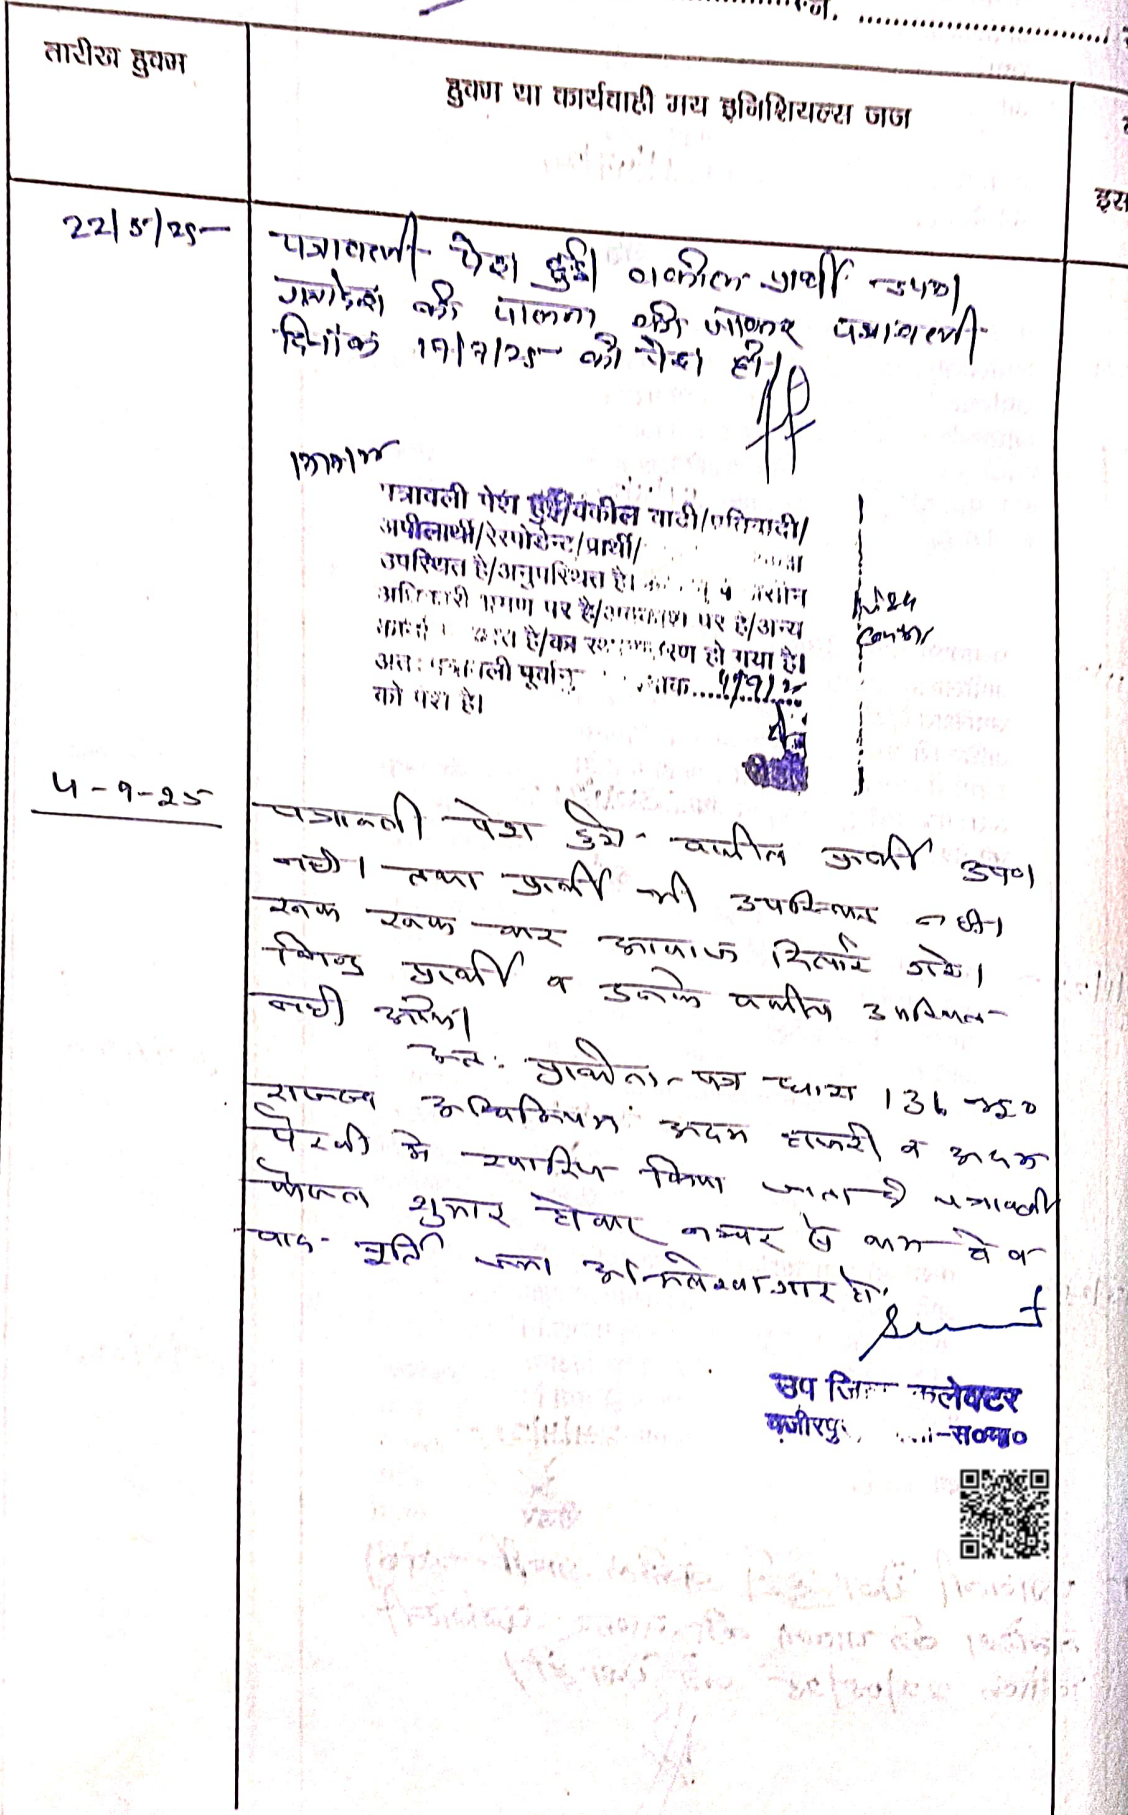 तारीख हुक्म
हुक्म या कार्यवाही मय इनिशियल्स जज
इस
22/5/25
पत्रावली पेश हुई। वकील प्रार्थी उप०।
की पालना की जाकर पत्रावली
दिनांक 17/7/25 को पेश हो।
पत्रावली पेश हुई/वकील वादी/प्रतिवादी/
अपीलार्थी/रेस्पोडेन्ट/प्रार्थी/
उपस्थित है/अनुपस्थित है।
अधिकारी भ्रमण पर है/अवकाश पर है/अन्य
है/का स्थानान्तरण हो गया है।
अतः पत्रावली
को पेश है।
4-9-25
पत्रावली पेश हुई वकील प्रार्थी उप०
नही। तथा प्रार्थी भी उपस्थित नही।
रूक रूक कर आवाज दिलाई गई।
किन्तु प्रार्थी व उनके वकील उपस्थित
नही आये।
अतः प्रार्थना-पत्र धारा 136 भू०
राजस्व अधिनियम अदम हाजरी व अदम
पैरवी मे खारिज किया जाता है पत्रावली
फैसल शुमार होकर नम्बर से कम हो व
बाद पूर्ति जमा अभिलेखागार हो।
उप जिला कलेक्टर
वजीरपुर -स०मा०